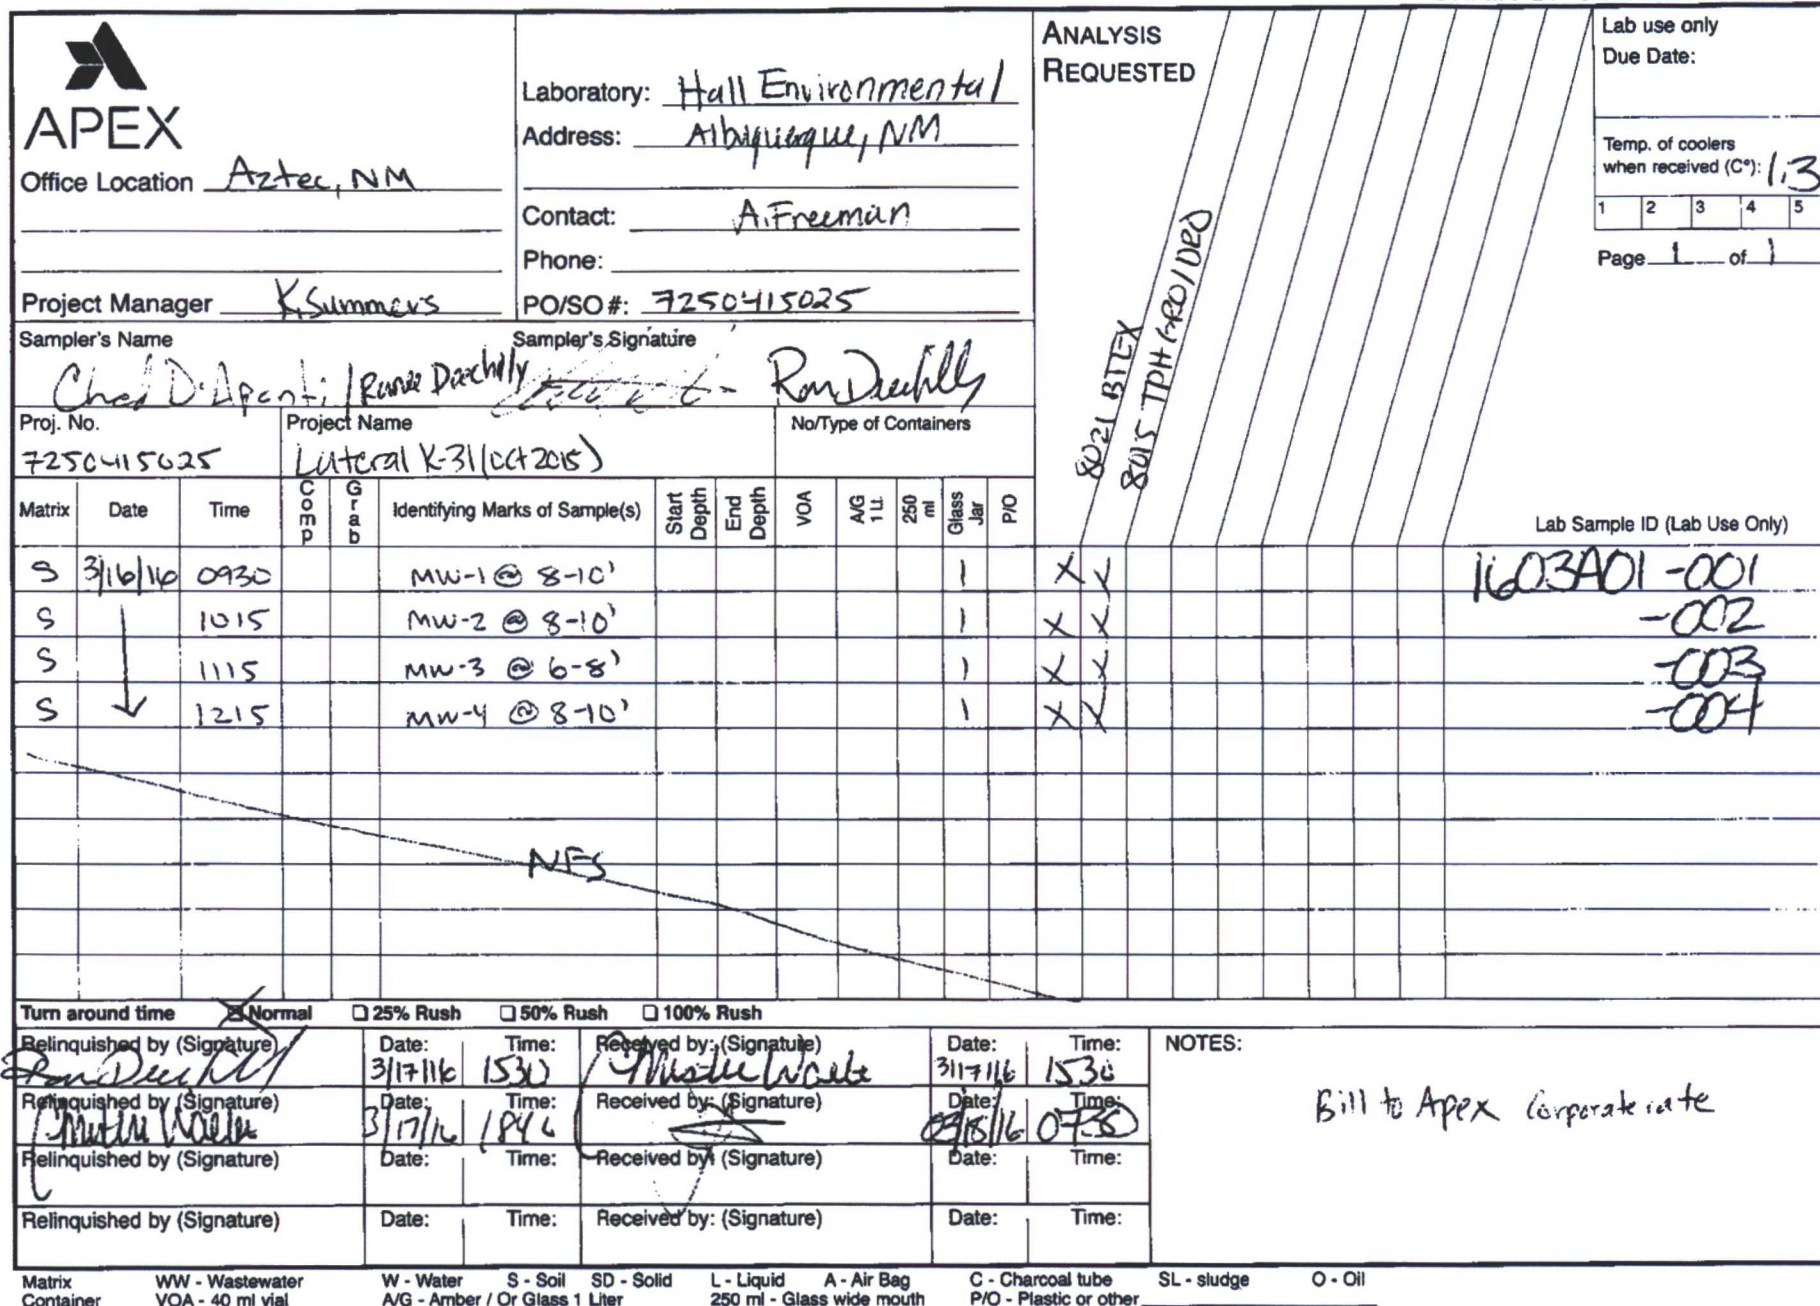 APEX
Office Location Aztec, NM
Project Manager K. Summers
Laboratory: Hall Environmental
Address: Albuquerque, NM
Contact: A. Freeman
Phone:
PO/SO #: 7250415025
ANALYSIS
REQUESTED
8021 BTEX
8015 TPH GRO/DRO
Lab use only
Due Date:
Temp. of coolers
when received (C°): 1.3
1 2 3 4 5
Page 1 of 1
Sampler's Name
Chad D'Aponti / Ranee Deechilly
Sampler's Signature
Ran Deechilly
Proj. No.
7250415025
Project Name
Lateral K-31 (Oct 2015)
No/Type of Containers
Matrix Date Time Comp Grab Identifying Marks of Sample(s) Start Depth End Depth VOA A/G 1 Lt. 250 ml Glass Jar P/O Lab Sample ID (Lab Use Only)
S 3/16/16 0930 MW-1 @ 8-10' 1 X X 1603A01-001
S 1015 MW-2 @ 8-10' 1 X X -002
S 1115 MW-3 @ 6-8' 1 X X -003
S 1215 MW-4 @ 8-10' 1 X X -004
NFS
Turn around time Normal 25% Rush 50% Rush 100% Rush
Relinquished by (Signature) Date: Time: Received by: (Signature) Date: Time: NOTES:
Ran Deechilly 3/17/16 1530 3/17/16 1530
Relinquished by (Signature) Date: Time: Received by: (Signature) Date: Time:
3/17/16 03/18/16
Bill to Apex Corporate rate
Relinquished by (Signature) Date: Time: Received by: (Signature) Date: Time:
Relinquished by (Signature) Date: Time: Received by: (Signature) Date: Time:
Matrix WW - Wastewater W - Water S - Soil SD - Solid L - Liquid A - Air Bag C - Charcoal tube SL - sludge O - Oil
Container VOA - 40 ml vial A/G - Amber / Or Glass 1 Liter 250 ml - Glass wide mouth P/O - Plastic or other